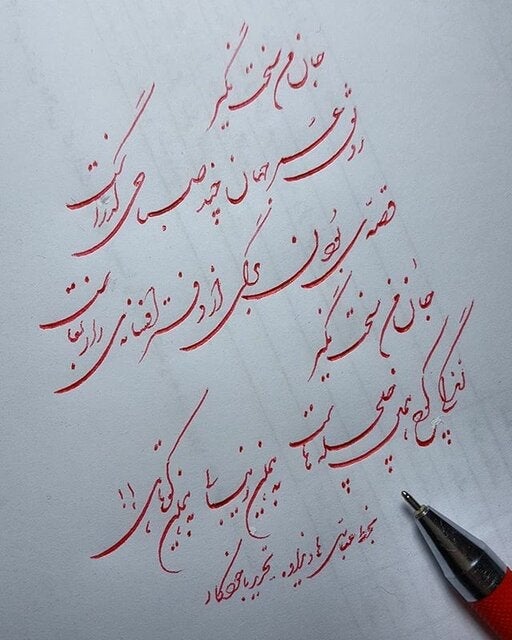 جان من سخت نگیر
رونق عمر جهان چند صباحی گذراست
قصّه‌ی بودن برگی از دفتر افسانه‌ی راز بقاست
جان من سخت نگیر
زندگی کوچ همین چلچله هاست
به همین زیبایی به همین کوتاهی!!
بخط عباس هادیزاده. تحریر با خودکار